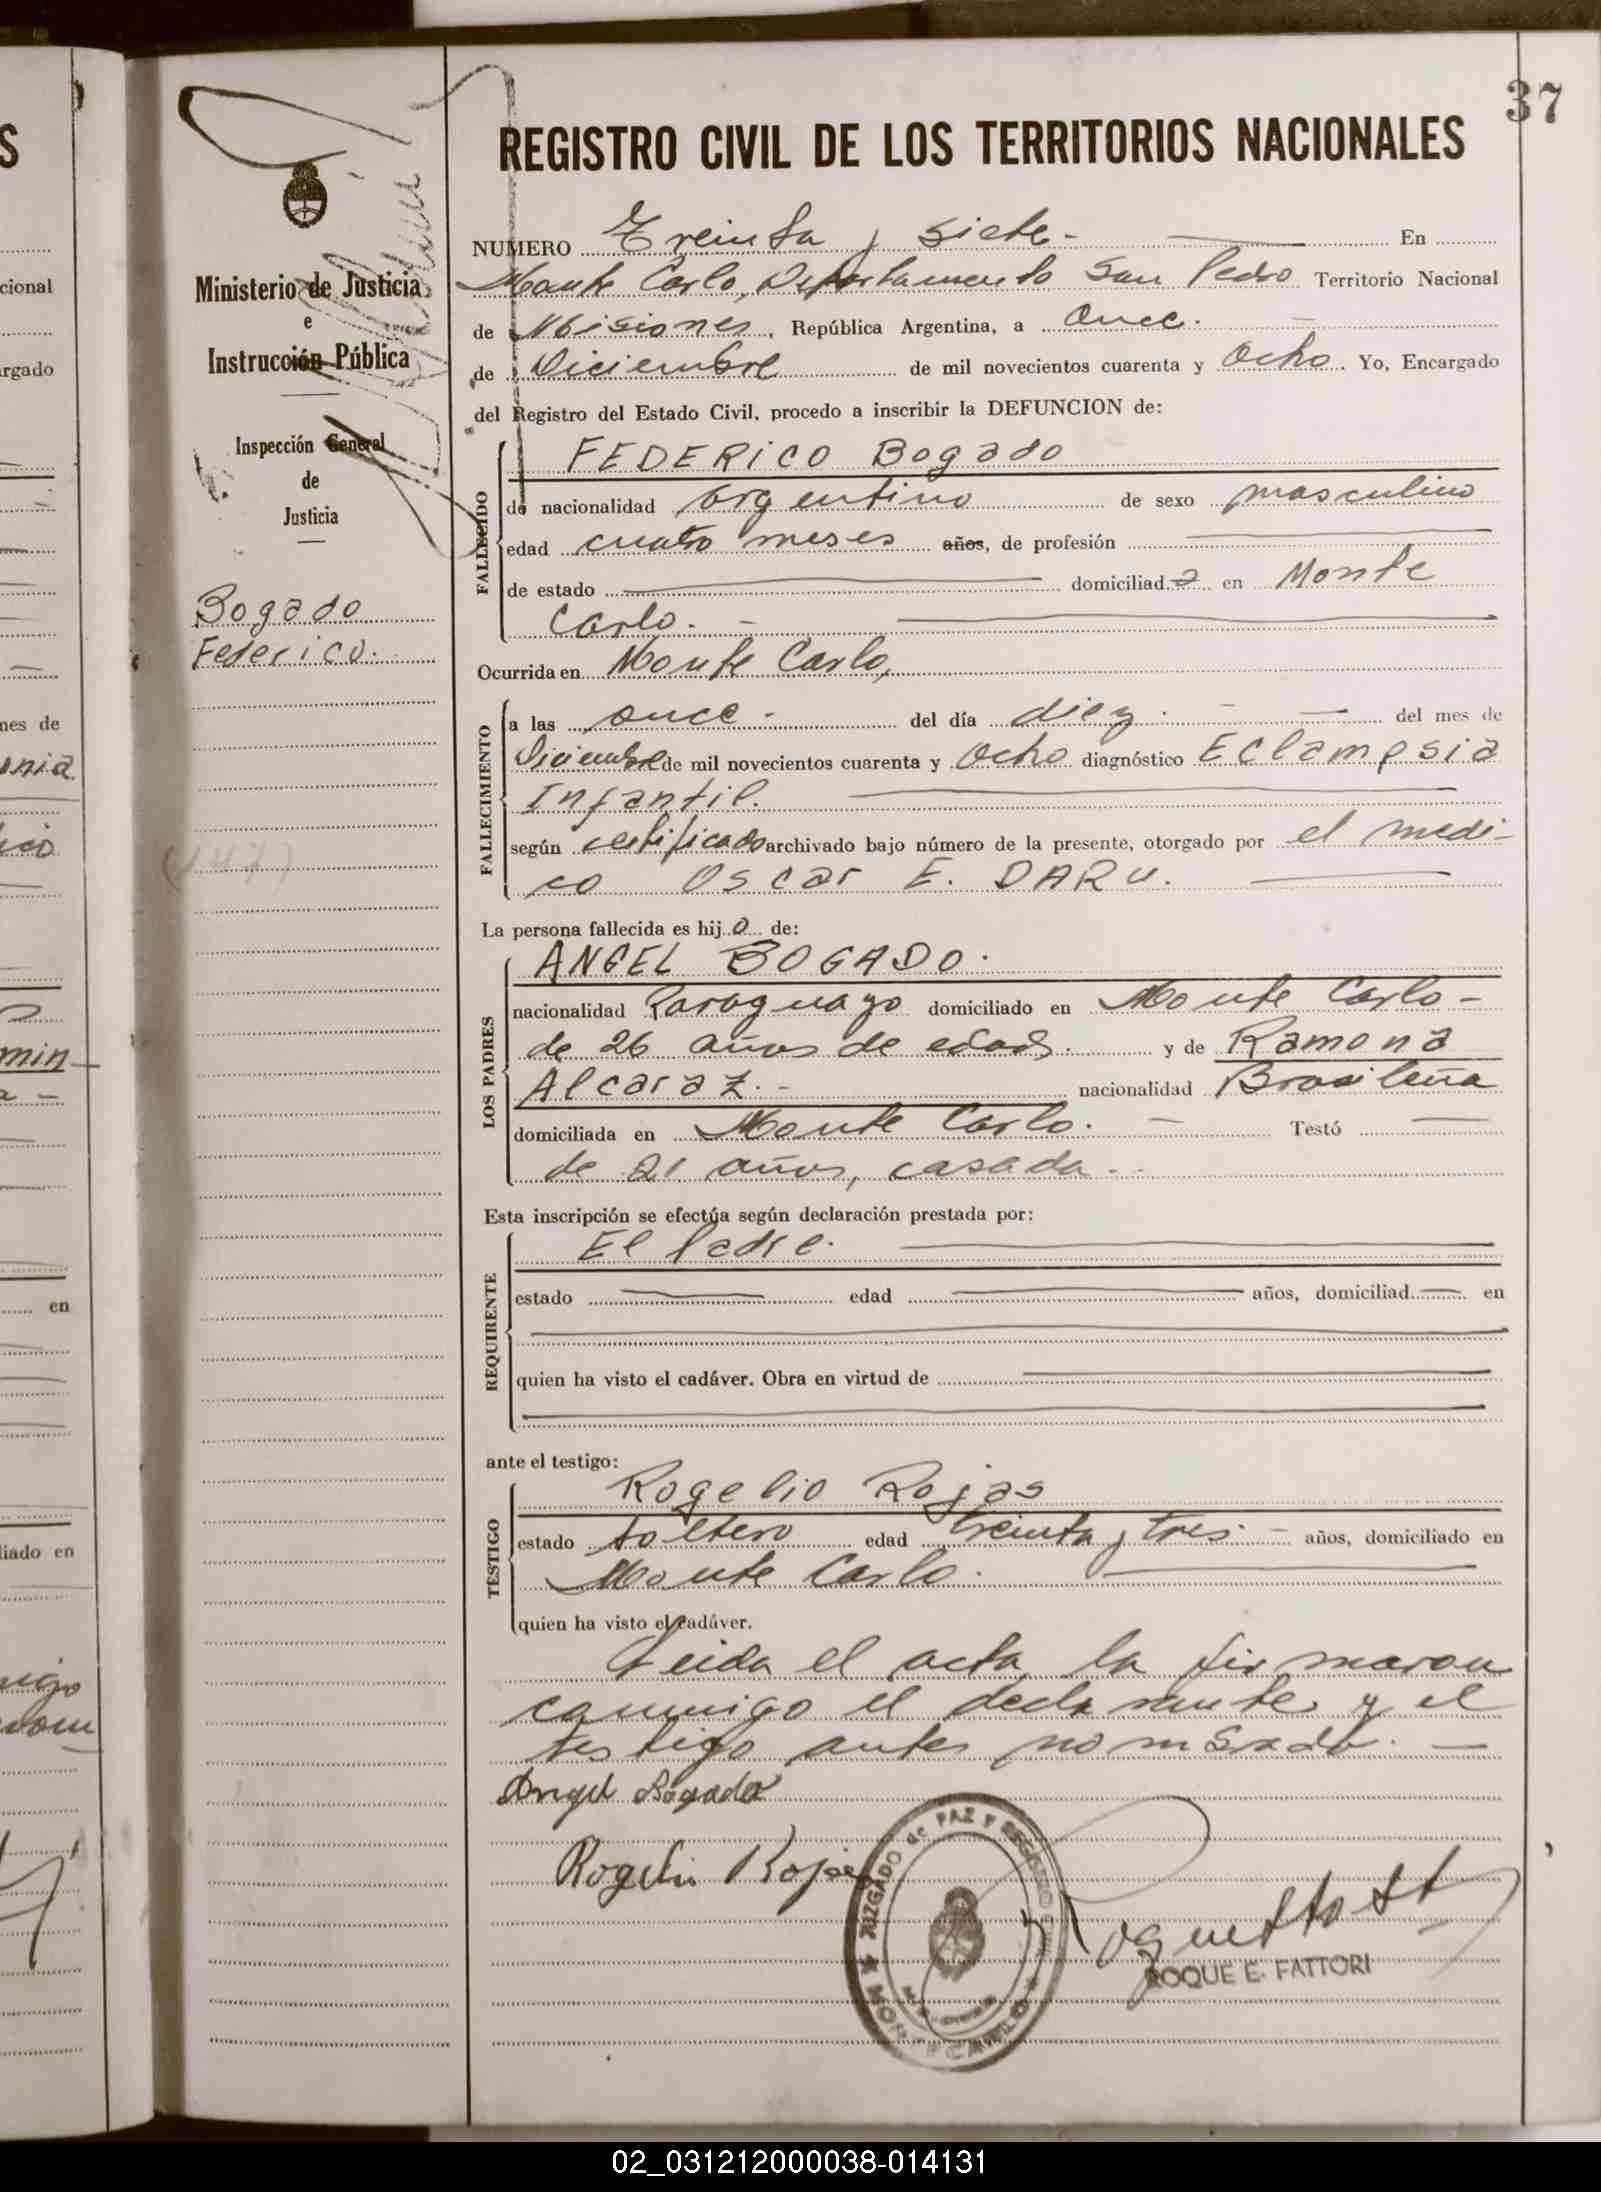 37
REGISTRO CIVIL DE LOS TERRITORIOS NACIONALES
Ministerio de Justicia
e
Instrucción Pública
Inspección General
de
Justicia
Bogado
Federico.
(147)
NUMERO Treinta y siete.- En
Monte Carlo, Departamento San Pedro Territorio Nacional
de Misiones, República Argentina, a once.
de Diciembre de mil novecientos cuarenta y Ocho. Yo, Encargado
del Registro del Estado Civil, procedo a inscribir la DEFUNCION de:
FALLECIDO
FEDERICO Bogado
de nacionalidad Argentino de sexo masculino
edad cuatro meses años, de profesión
de estado domiciliad o en Monte
Carlo.-
Ocurrida en Monte Carlo,
FALLECIMIENTO
a las once.- del día diez.- del mes de
Diciembre de mil novecientos cuarenta y Ocho diagnóstico Eclampsia
Infantil.
según certificado archivado bajo número de la presente, otorgado por el medi-
co Oscar E. DARU.
La persona fallecida es hij o de:
LOS PADRES
ANGEL BOGADO.
nacionalidad Paraguayo domiciliado en Monte Carlo-
de 26 años de edad. y de Ramona
Alcaraz.- nacionalidad Brasileña
domiciliada en Monte Carlo. Testó
de 21 años, casada.
Esta inscripción se efectúa según declaración prestada por:
REQUIRENTE
El Padre.
estado edad años, domiciliad en
quien ha visto el cadáver. Obra en virtud de
ante el testigo:
TESTIGO
Rogelio Rojas
estado soltero edad treinta y tres.- años, domiciliado en
Monte Carlo.
quien ha visto el cadáver.
Leida el acta, la firmaron
conmigo el declarante y el
testigo antes nombrado.-
Angel Bogado
Rogelio Rojas
JUZGADO de PAZ Y REGISTRO CIVIL
MONTECARLO
ROQUE E. FATTORI
02_031212000038-014131